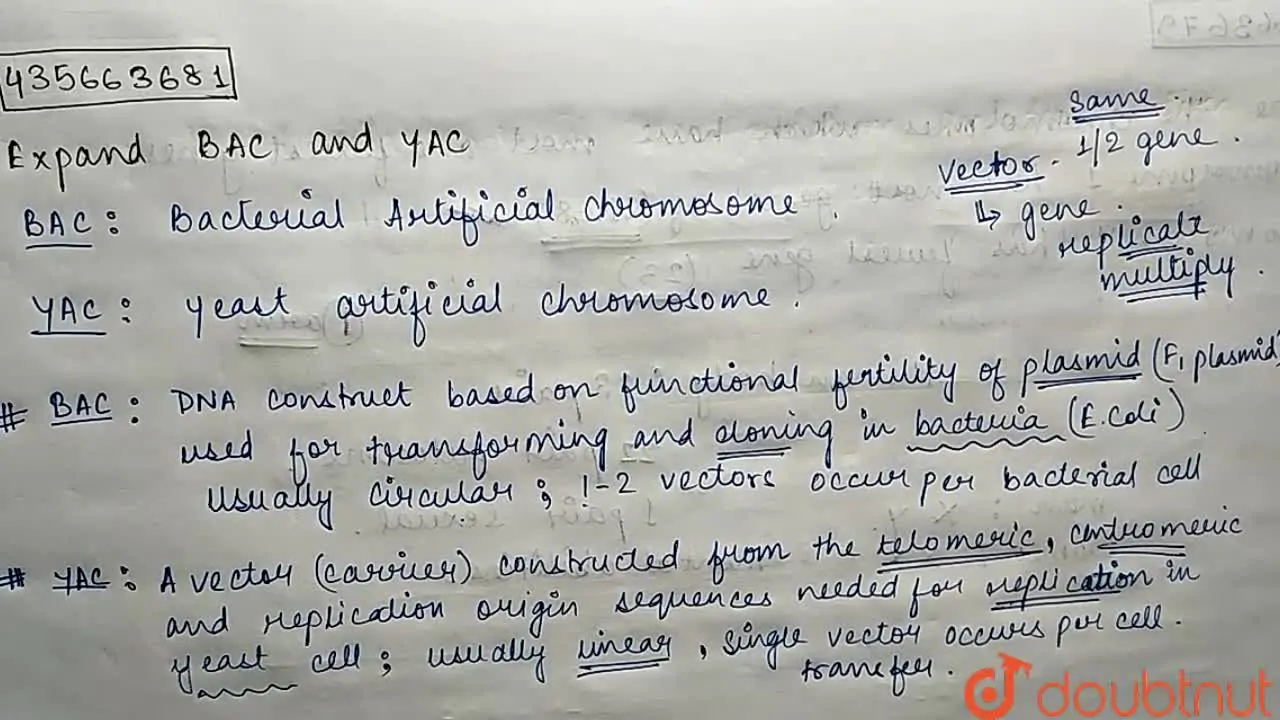 435663681
Expand BAC and YAC
BAC : Bacterial Artificial chromosome.
YAC : Yeast artificial chromosome.
same.
vector. 1/2 gene.
↳ gene.
replicate
multiply.
# BAC : DNA construct based on functional fertility of plasmid (F, plasmid)
used for transforming and cloning in bacteria (E.Coli).
usually circular ; 1-2 vectors occur per bacterial cell
# YAC : A vector (carrier) constructed from the telomeric, centromeric
and replication origin sequences needed for replication in
yeast cell ; usually linear, single vector occurs per cell.
transfer.
doubtnut